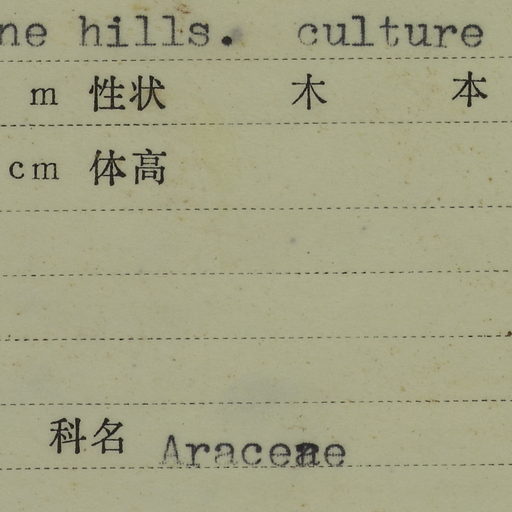 ne hills. culture
m 性状 木 本
cm 体高
科名 Araceae